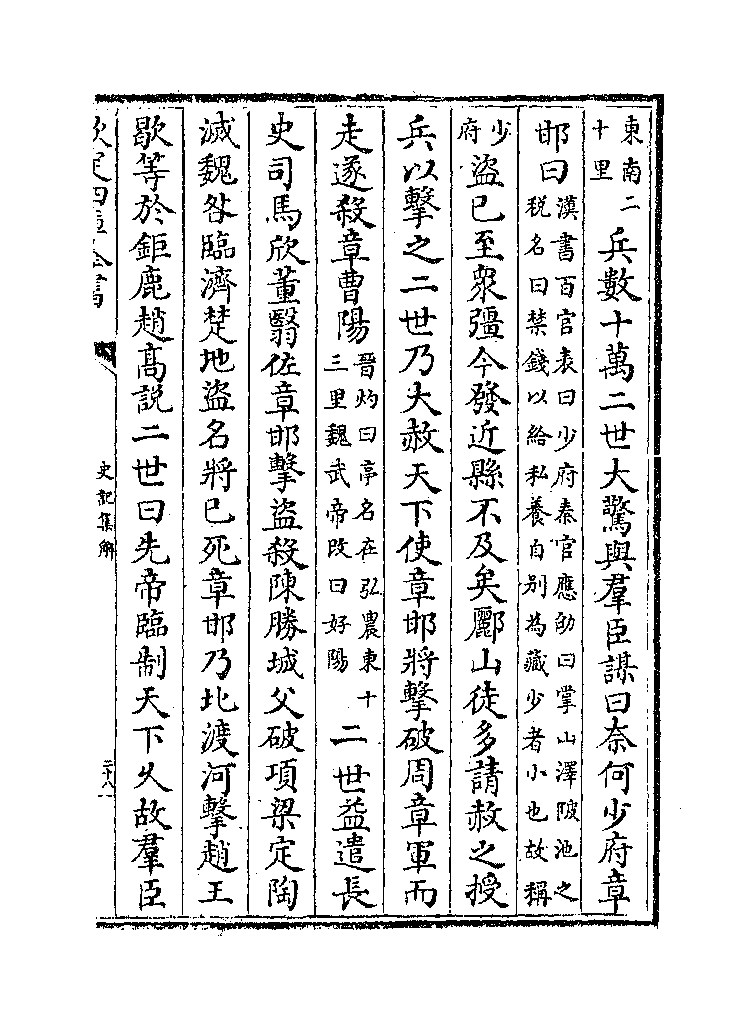 東南二十里兵數十萬二世大驚與羣臣謀曰奈何少府章
邯曰漢書百官表曰少府秦官應劭曰掌山澤陂池之稅名曰禁錢以給私養自别為藏少者小也故稱
少府盜已至衆彊今發近縣不及矣酈山徒多請赦之授
兵以擊之二世乃大赦天下使章邯將擊破周章軍而
走遂殺章曹陽晉灼曰亭名在弘農東十三里魏武帝改曰好陽二世益遣長
史司馬欣董翳佐章邯擊盜殺陳勝城父破項梁定陶
滅魏咎臨濟楚地盜名將已死章邯乃北渡河擊趙王
歇等於鉅鹿趙高説二世曰先帝臨制天下久故羣臣
欽定四庫全書
史記集解
二十八